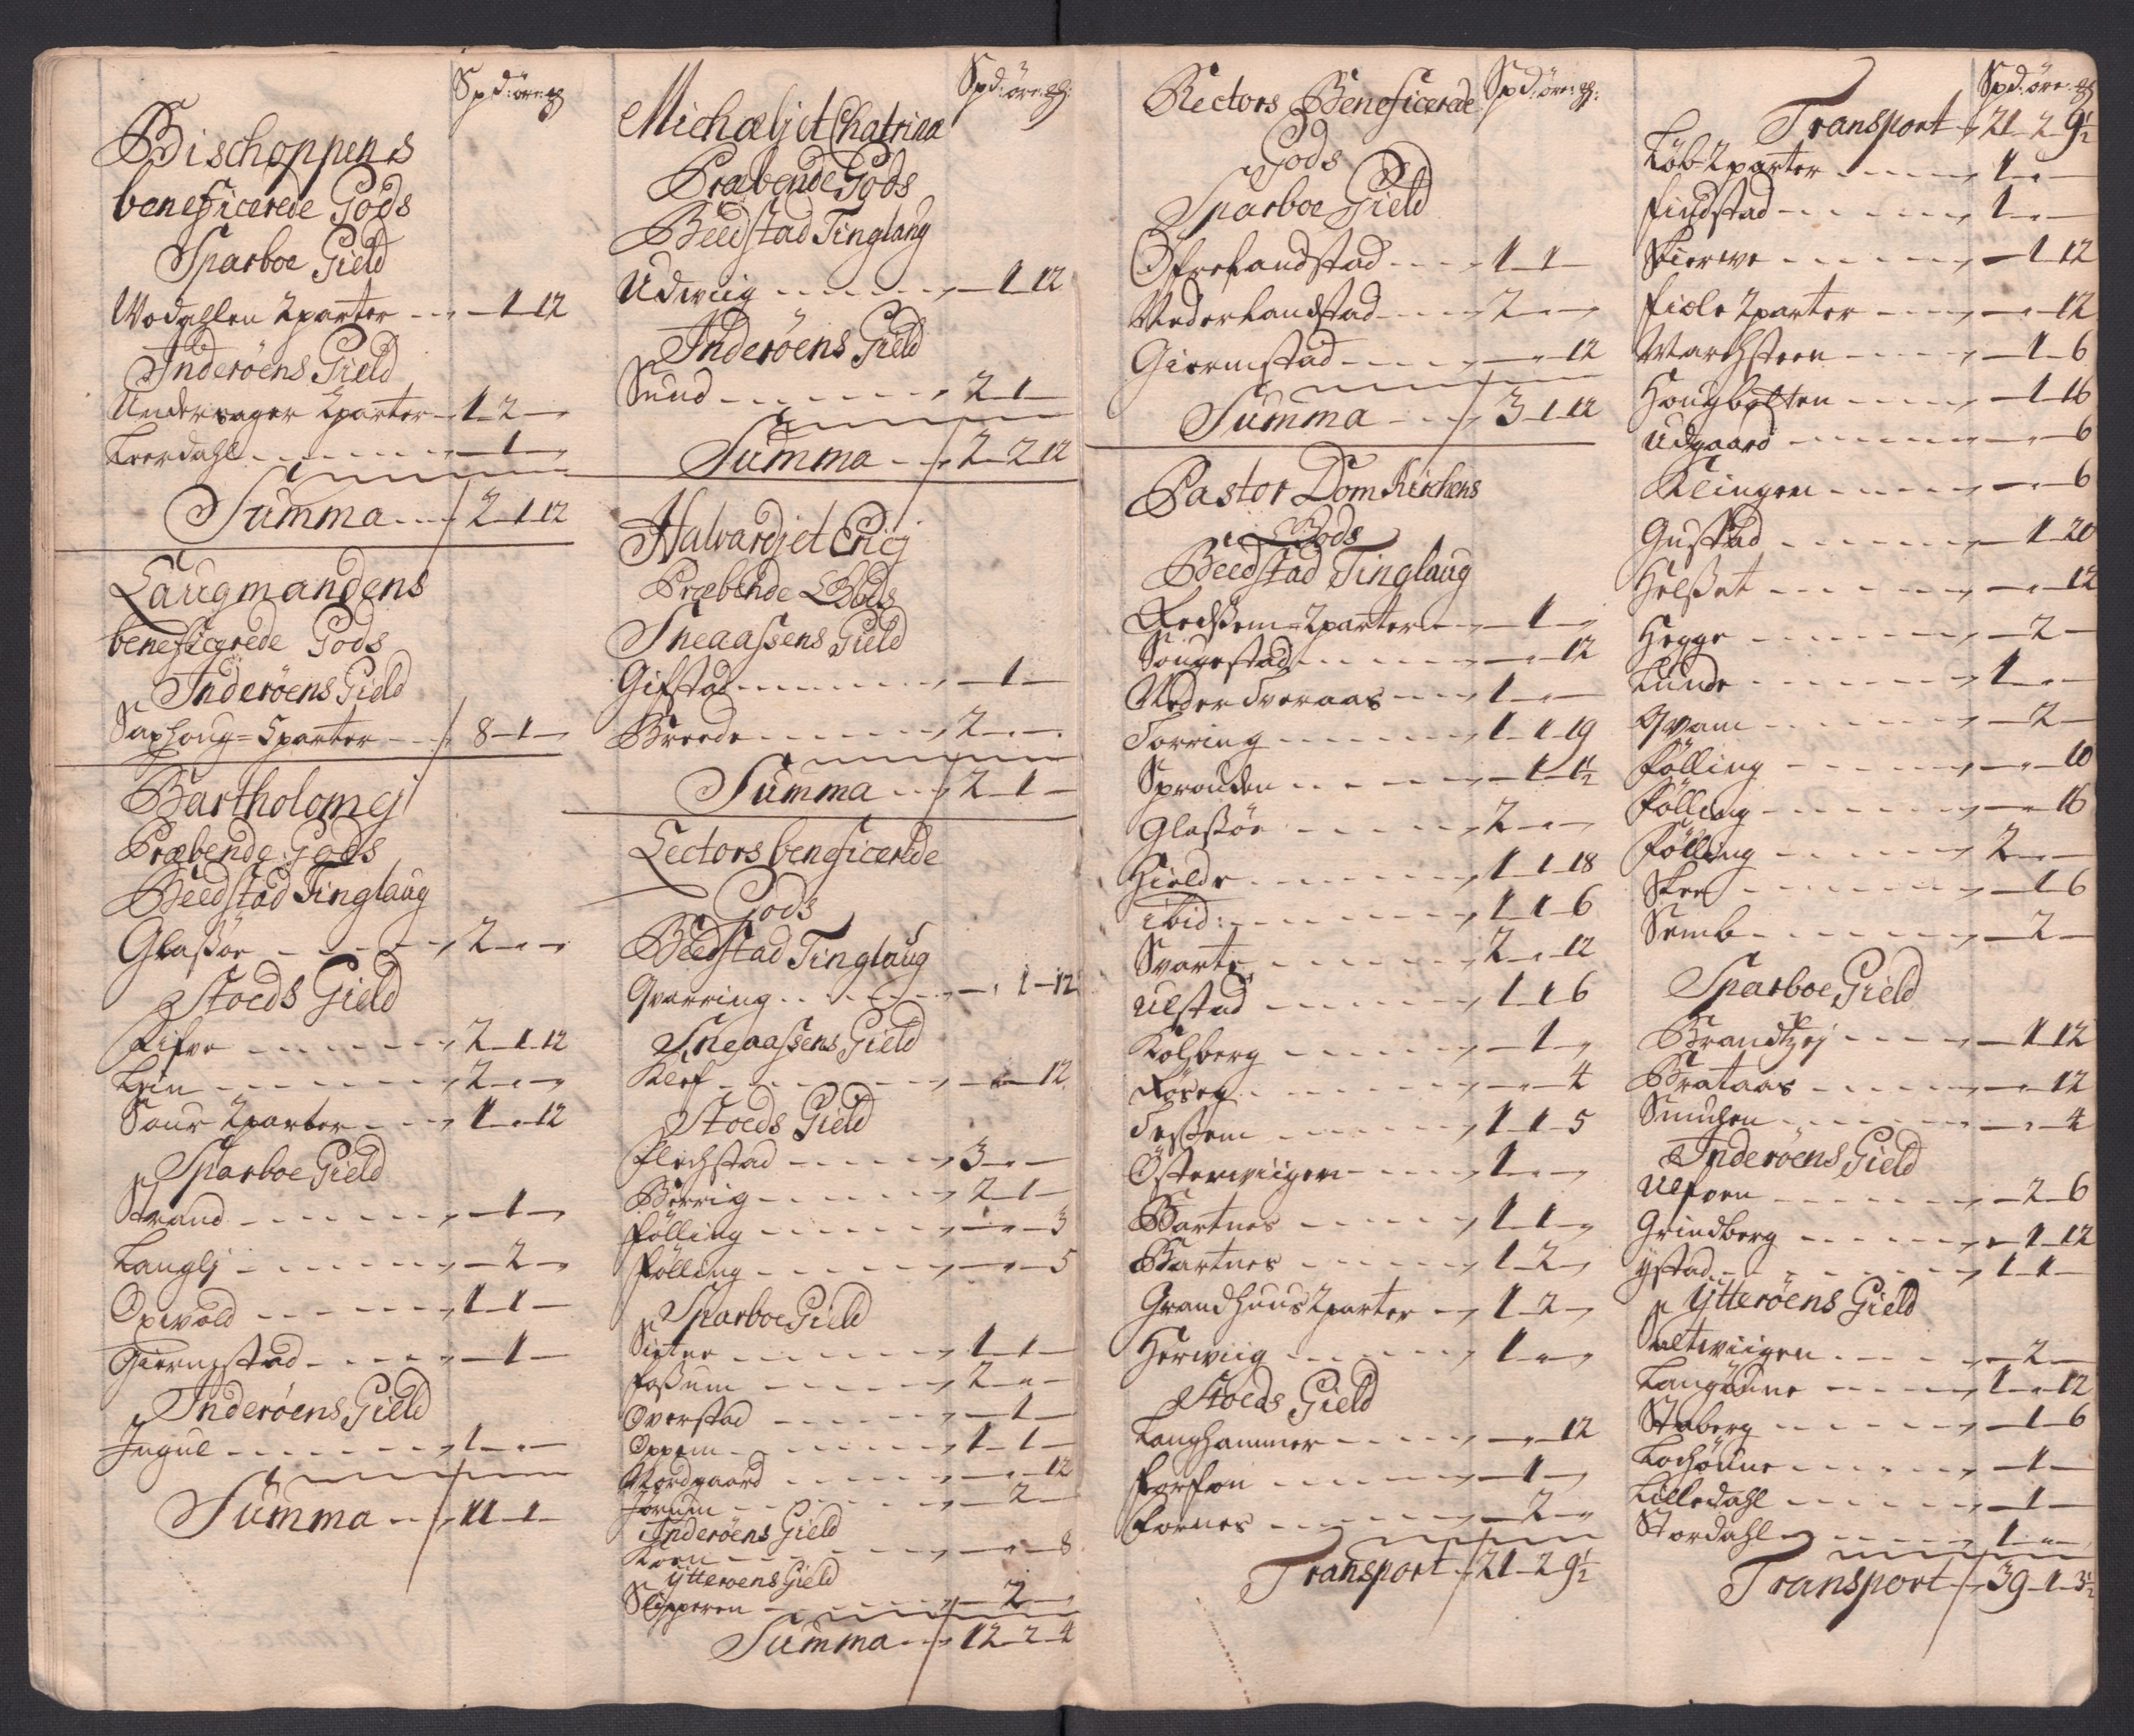 Spd: öre: g
Bischoppens
beneficerede Gods
Sparboe Gield
Wodallen 2parter - 1 - 12
Inderöens Gield
Undersager 2parter - 1 - 2 -
Leerdahl - 1 -
Summa 2 - 1 - 12
Laugmandens
beneficerede Gods
Inderöens Gield
Saxhoug = 5parter 8 - 1 -
Bartholomej
Præbende Gods
Beedstad Tinglaug
Glassöe 2 - -
Stoeds Gield
Rifve 2 - 1 - 12
Lein 2 - -
Saur 2parter 1 - 12
Sparboe Gield
Strand - 1 -
Langlj - 2 -
Opvold 1 - 1 -
Giermstad - 1 -
Inderöens Gield
Jngul 1 - -
Summa 11 - 1 -
Spd: öre: g:
Michælj et Chatrina
Præbende Gods
Beedstad Tinglaug
Udwiig - 1 - 12
Inderöens Gield
Sund 2 - 1 -
Summa 2 - 2 - 12
Halvardj et Ericj
Præbende Gods
Sneaassens Gield
Gifstad - 1 -
Breede 2 - -
Summa 2 - 1 -
Lectors beneficerede
Gods
Beedstad Tinglaug
Qvarving - 1 - 12
Sneaassens Gield
Klef - - 12
Stoeds Gield
Flechstad 3 - -
Berrig 2 - 1 -
Fölling - - 3
Fölling - - 5
Sparboe Gield
Sietne 1 - 1 -
Fossum 2 - -
Overstad - 1 -
Oppem 1 - 1 -
Nordgaard - - 12
Jorum - 2 -
Inderöens Gield
Korn - - 8
Ytteroens Gield
Slipperen - 2 -
Summa 12 - 2 - 4
Rectors Beneficerede Spd: öre: g:
Gods
Sparboe Gield
Öfrelandstad 1 - 1 -
Nederlandstad 2 - -
Giermstad - - 12
Summa 3 - 1 - 12
Pastor Dom Kirchens
Gods
Beedstad Tinglaug
Qvodssem = 2parter - 1 -
Sougestad - - 12
Neder Tveraas 1 - -
Torring 1 - 1 - 19
Sprouden - 1 - 1½
Glassöe 2 - -
Hielde 1 - 1 - 18
ibid: 1 - 1 - 6
Svarte 2 - - 12
Ulstad 1 - 1 - 6
Kolberg - 1 -
Röseg - - 4
Tessem 1 - 1 - 5
Österwiigen 1 - -
Bartnes 1 - 1 -
Bartnes 1 - 2 -
Grandhuus 2parter 1 - 2 -
Herwiig 1 - -
Stoeds Gield
Langhammer - - 12
Forfon - 1 -
Fornes - 2 -
Transport 21 - 2 - 9½
Spd: öre: g
Transport 21 - 2 - 9½
Löb 2parter 1 - -
Findstad 1 - -
Skierve - 1 - 12
Fiole 2parter - - 12
Warchsteen - 1 - 6
Hougbotten - 1 - 16
Udgaard - - 6
Klingen - - 6
Gustad - 1 - 20
Helsset - - 12
Hegge - 2 -
Lunde 1 - -
Qvam - 2 -
Fölling - - 10
Fölling - - 16
Fölling 2 - -
Skee - 1 - 6
Semb - 2 -
Sparboe Gield
Brandtzej - 1 - 12
Brataas - - 12
Smuchen - - 4
Inderöens Gield
Ulfven - 2 - 6
Grindberg - 1 - 12
Ystad 1 - 1 -
Ytteröens Gield
Saltwiigen - 2 -
Langdune 1 - - 12
Staberg - 1 - 6
Lochöune - 1 -
Lilledahl - 1 -
Stordahl 1 - -
Transport 39 - 1 - 3½